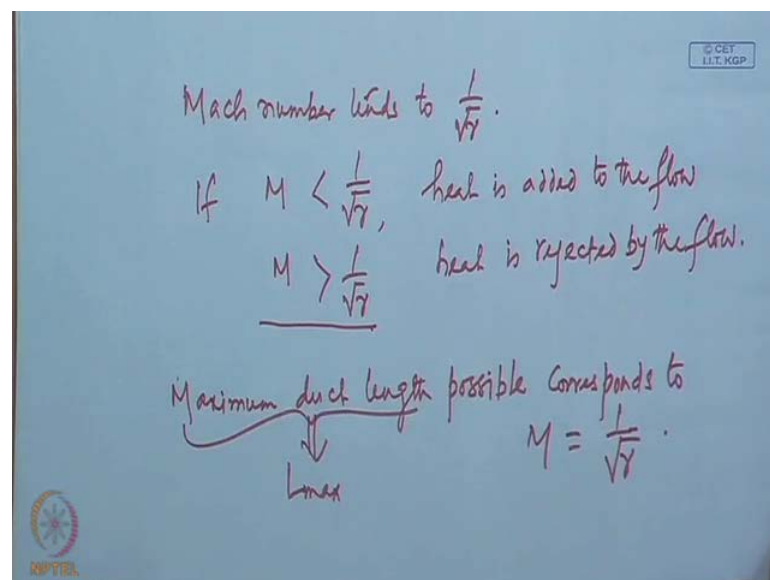 © CET
I.I.T. KGP
Mach number tends to 1/√γ.
If M < 1/√γ, heat is added to the flow
M > 1/√γ heat is rejected by the flow.
Maximum duct length possible corresponds to
M = 1/√γ.
Lmax
NPTEL